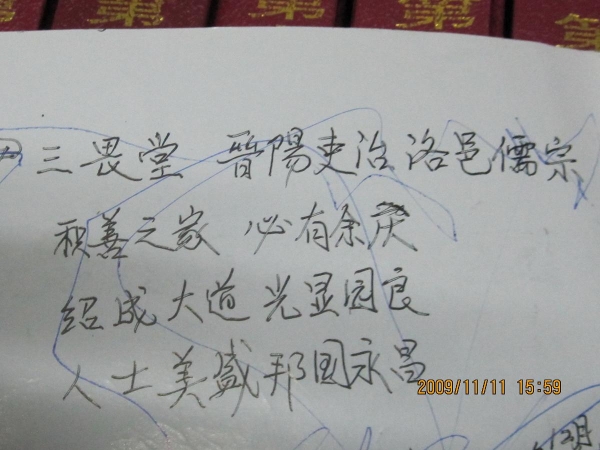 第 第 第 第 第
三畏堂 晋陽吏治 洛邑儒宗
积善之家 必有余庆
绍成大道 光显国良
人士美盛邦国永昌
2009/11/11 15:59